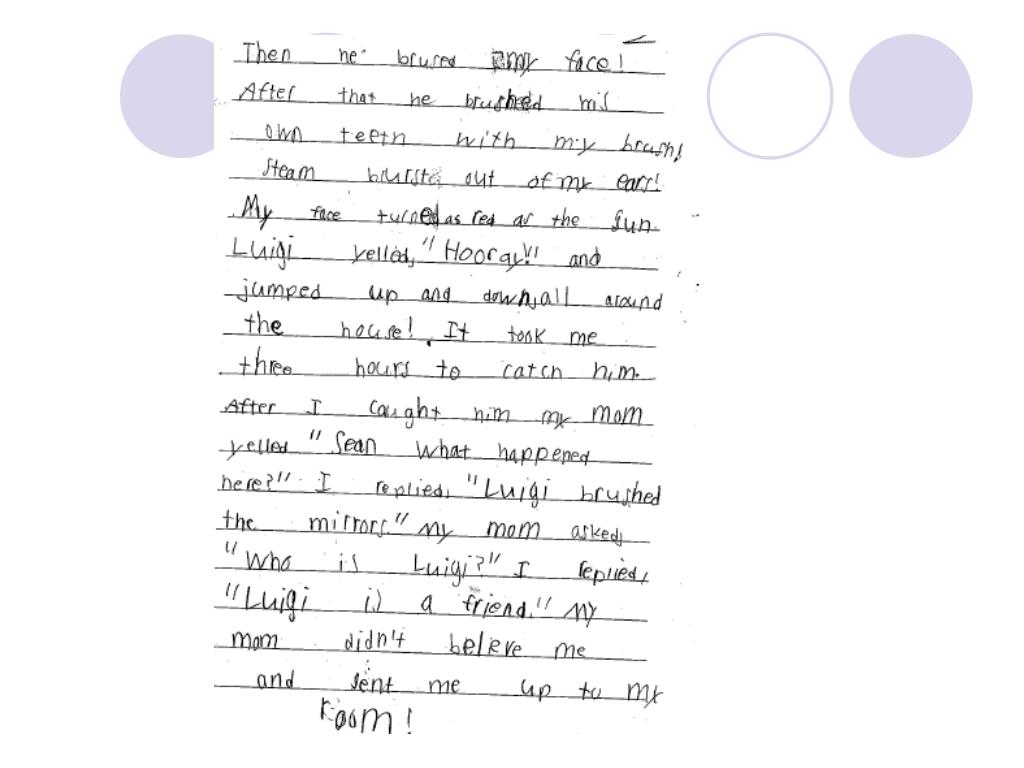 Then he brused my face!
After that he brushed his
own teeth with my brush!
Steam burste out of my ears!
My face turned as red as the sun.
Luigi yelled, "Hooray!" and
jumped up and down, all around
the house! It took me
three hours to catch him.
After I caught him my mom
yelled "Sean what happened
here?" I replied, "Luigi brushed
the mirrors." My mom asked,
"Who is Luigi?" I replied,
"Luigi is a friend." My
mom didn't believe me
and sent me up to my
room!